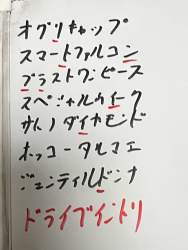 オグリキャップ
スマートファルコン
ブラストワンピース
スペシャルウィーク
サトノダイヤモンド
ホッコータルマエ
ジェンティルドンナ
ドライブイントリ